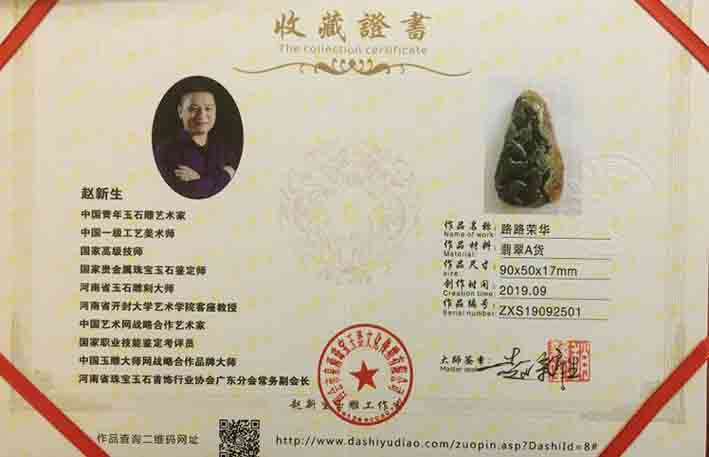 收藏證書
The collection certificate
赵新生
中国青年玉石雕艺术家
中国一级工艺美术师
国家高级技师
国家贵金属珠宝玉石鉴定师
河南省玉石雕刻大师
河南省开封大学艺术学院客座教授
中国艺术网战略合作艺术家
国家职业技能鉴定考评员
中国玉雕大师网战略合作品牌大师
河南省珠宝玉石首饰行业协会广东分会常务副会长
作品名称: 路路荣华
Name of work:
作品材料: 翡翠A货
Material:
作品尺寸: 90x50x17mm
size:
创作时间: 2019.09
Creation time:
作品编号: ZXS19092501
Serial number:
大师签章:
Master seal:
赵新生玉雕工作
作品查询二维码网址
http://www.dashiyudiao.com/zuopin.asp?DashiId=8#